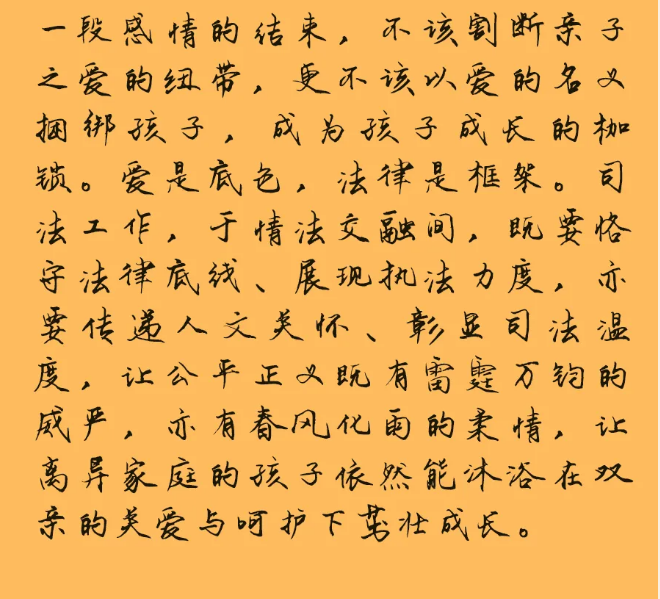 一段感情的结束，不该割断亲子
之爱的纽带，更不该以爱的名义
捆绑孩子，成为孩子成长的枷
锁。爱是底色，法律是框架。司
法工作，于情法交融间，既要恪
守法律底线、展现执法力度，亦
要传递人文关怀、彰显司法温
度，让公平正义既有雷霆万钧的
威严，亦有春风化雨的柔情，让
离异家庭的孩子依然能沐浴在双
亲的关爱与呵护下茁壮成长。